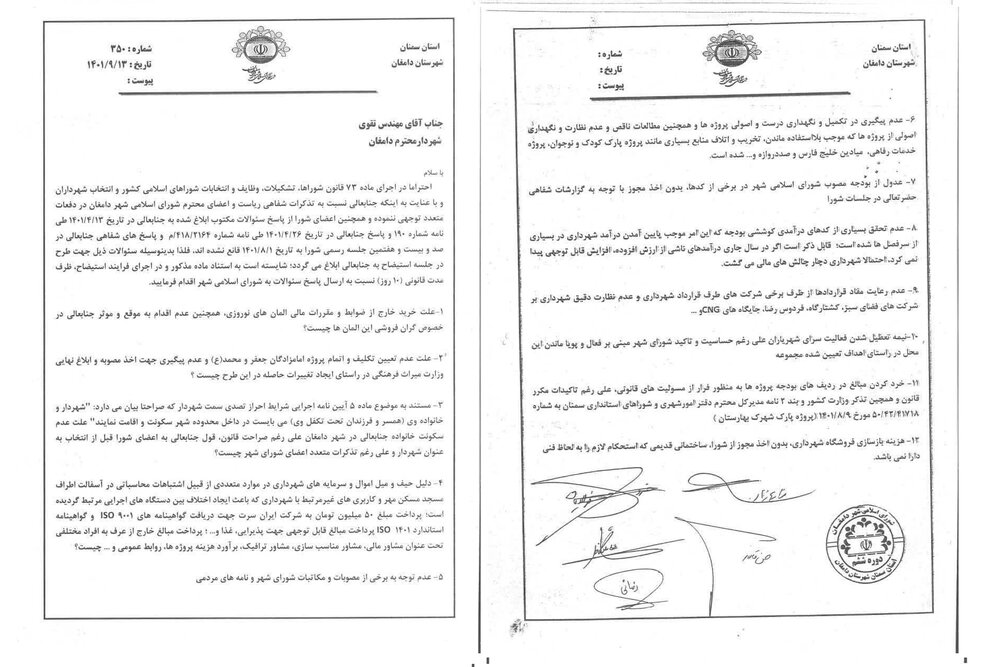 استان سمنان
شهرستان دامغان
شماره : ۳۵۰
تاریخ : ۱۴۰۱/۹/۱۳
پیوست :
جناب آقای مهندس تقوی
شهردار محترم دامغان
با سلام
احتراما در اجرای ماده ۷۳ قانون شوراها، تشکیلات، وظایف و انتخابات شوراهای اسلامی کشور و انتخاب شهرداران
و با عنایت به اینکه جنابعالی نسبت به تذکرات شفاهی ریاست و اعضای محترم شورای اسلامی شهر دامغان در دفعات
متعدد توجهی ننموده و همچنین اعضای شورا از پاسخ سئوالات مکتوب ابلاغ شده به جنابعالی در تاریخ ۱۴۰۱/۴/۱۳ طی
نامه شماره ۱۹۰ و پاسخ جنابعالی در تاریخ ۱۴۰۱/۴/۲۶ طی نامه شماره ۴۱۸/۲۱۶۴/م و پاسخ های شفاهی جنابعالی در
صد و بیست و هفتمین جلسه رسمی شورا به تاریخ ۱۴۰۱/۸/۱ قانع نشده اند، فلذا بدینوسیله سئوالات ذیل جهت طرح
در جلسه استیضاح به جنابعالی ابلاغ می گردد؛ شایسته است به استناد ماده مذکور و در اجرای فرایند استیضاح، ظرف
مدت قانونی (۱۰ روز) نسبت به ارسال پاسخ سئوالات به شورای اسلامی شهر اقدام فرمایید.
۱-علت خرید خارج از ضوابط و مقررات مالی المان های نوروزی، همچنین عدم اقدام به موقع و موثر جنابعالی در
خصوص گران فروشی این المان ها چیست؟
۲- علت عدم تعیین تکلیف و اتمام پروژه امامزادگان جعفر و محمد(ع) و عدم پیگیری جهت اخذ مصوبه و ابلاغ نهایی
وزارت میراث فرهنگی در راستای ایجاد تغییرات حاصله در این طرح چیست؟
۳- مستند به موضوع ماده ۵ آیین نامه اجرایی شرایط احراز تصدی سمت شهردار که صراحتا بیان می دارد: "شهردار و
خانواده وی (همسر و فرزندان تحت تکفل وی) می بایست در داخل محدوده شهر سکونت و اقامت نمایند" علت عدم
سکونت خانواده جنابعالی در شهر دامغان علی رغم صراحت قانون، قول جنابعالی به اعضای شورا قبل از انتخاب به
عنوان شهردار و علی رغم تذکرات متعدد اعضای شورای شهر چیست؟
۴- دلیل حیف و میل اموال و سرمایه های شهرداری در موارد متعددی از قبیل اشتباهات محاسباتی در آسفالت اطراف
مسجد مسکن مهر و کاربری های غیرمرتبط با شهرداری که باعث ایجاد اختلاف بین دستگاه های اجرایی مرتبط گردیده
است؛ پرداخت مبلغ ۵۰ میلیون تومان به شرکت ایران سرت جهت دریافت گواهینامه های ISO ۹۰۰۱ و گواهینامه
استاندارد ISO ۱۴۰۱ پرداخت مبالغ قابل توجهی جهت پذیرایی، غذا و... ؛ پرداخت مبالغ خارج از عرف به افراد مختلفی
تحت عنوان مشاور مالی، مشاور مناسب سازی، مشاور ترافیک، برآورد هزینه پروژه ها، روابط عمومی و ... چیست؟
۵- عدم توجه به برخی از مصوبات و مکاتبات شورای شهر و نامه های مردمی
استان سمنان
شهرستان دامغان
شماره :
تاریخ :
پیوست :
۶- عدم پیگیری در تکمیل و نگهداری درست و اصولی پروژه ها و همچنین مطالعات ناقص و عدم نظارت و نگهداری
اصولی از پروژه ها که موجب بلااستفاده ماندن، تخریب و اتلاف منابع بسیاری مانند پروژه پارک کودک و نوجوان، پروژه
خدمات رفاهی، میادین خلیج فارس و صددروازه و... شده است.
۷- عدول از بودجه مصوب شورای اسلامی شهر در برخی از کدها، بدون اخذ مجوز با توجه به گزارشات شفاهی
حضرتعالی در جلسات شورا
۸- عدم تحقق بسیاری از کدهای درآمدی کوششی بودجه که این امر موجب پایین آمدن درآمد شهرداری در بسیاری
از سرفصل ها شده است؛ قابل ذکر است اگر در سال جاری درآمدهای ناشی از ارزش افزوده، افزایش قابل توجهی پیدا
نمی کرد، احتمالا شهرداری دچار چالش های مالی می گشت.
۹- عدم رعایت مفاد قراردادها از طرف برخی شرکت های طرف قرارداد شهرداری و عدم نظارت دقیق شهرداری بر
شرکت های فضای سبز، کشتارگاه، فردوس رضا، جایگاه های CNG و ...
۱۰-نیمه تعطیل شدن فعالیت سرای شهریاران علی رغم حساسیت و تاکید شورای شهر مبنی بر فعال و پویا ماندن این
محل در راستای اهداف تعیین شده مجموعه
۱۱- خرد کردن مبالغ در ردیف های بودجه پروژه ها به منظور فرار از مسولیت های قانونی، علی رغم تاکیدات مکرر
قانون و همچنین تذکر وزارت کشور و بند ۲ نامه مدیرکل محترم دفتر امورشهری و شوراهای استانداری سمنان به شماره
۵۰/۴۲/۴۱۷۱۸ مورخ ۱۴۰۱/۸/۹ (پروژه پارک شهرک بهارستان )
۱۲- هزینه بازسازی فروشگاه شهرداری، بدون اخذ مجوز از شورا، ساختمانی قدیمی که استحکام لازم را به لحاظ فنی
دارا نمی باشد.
شورای اسلامی شهر دامغان
دوره ششم
استان سمنان شهرستان دامغان